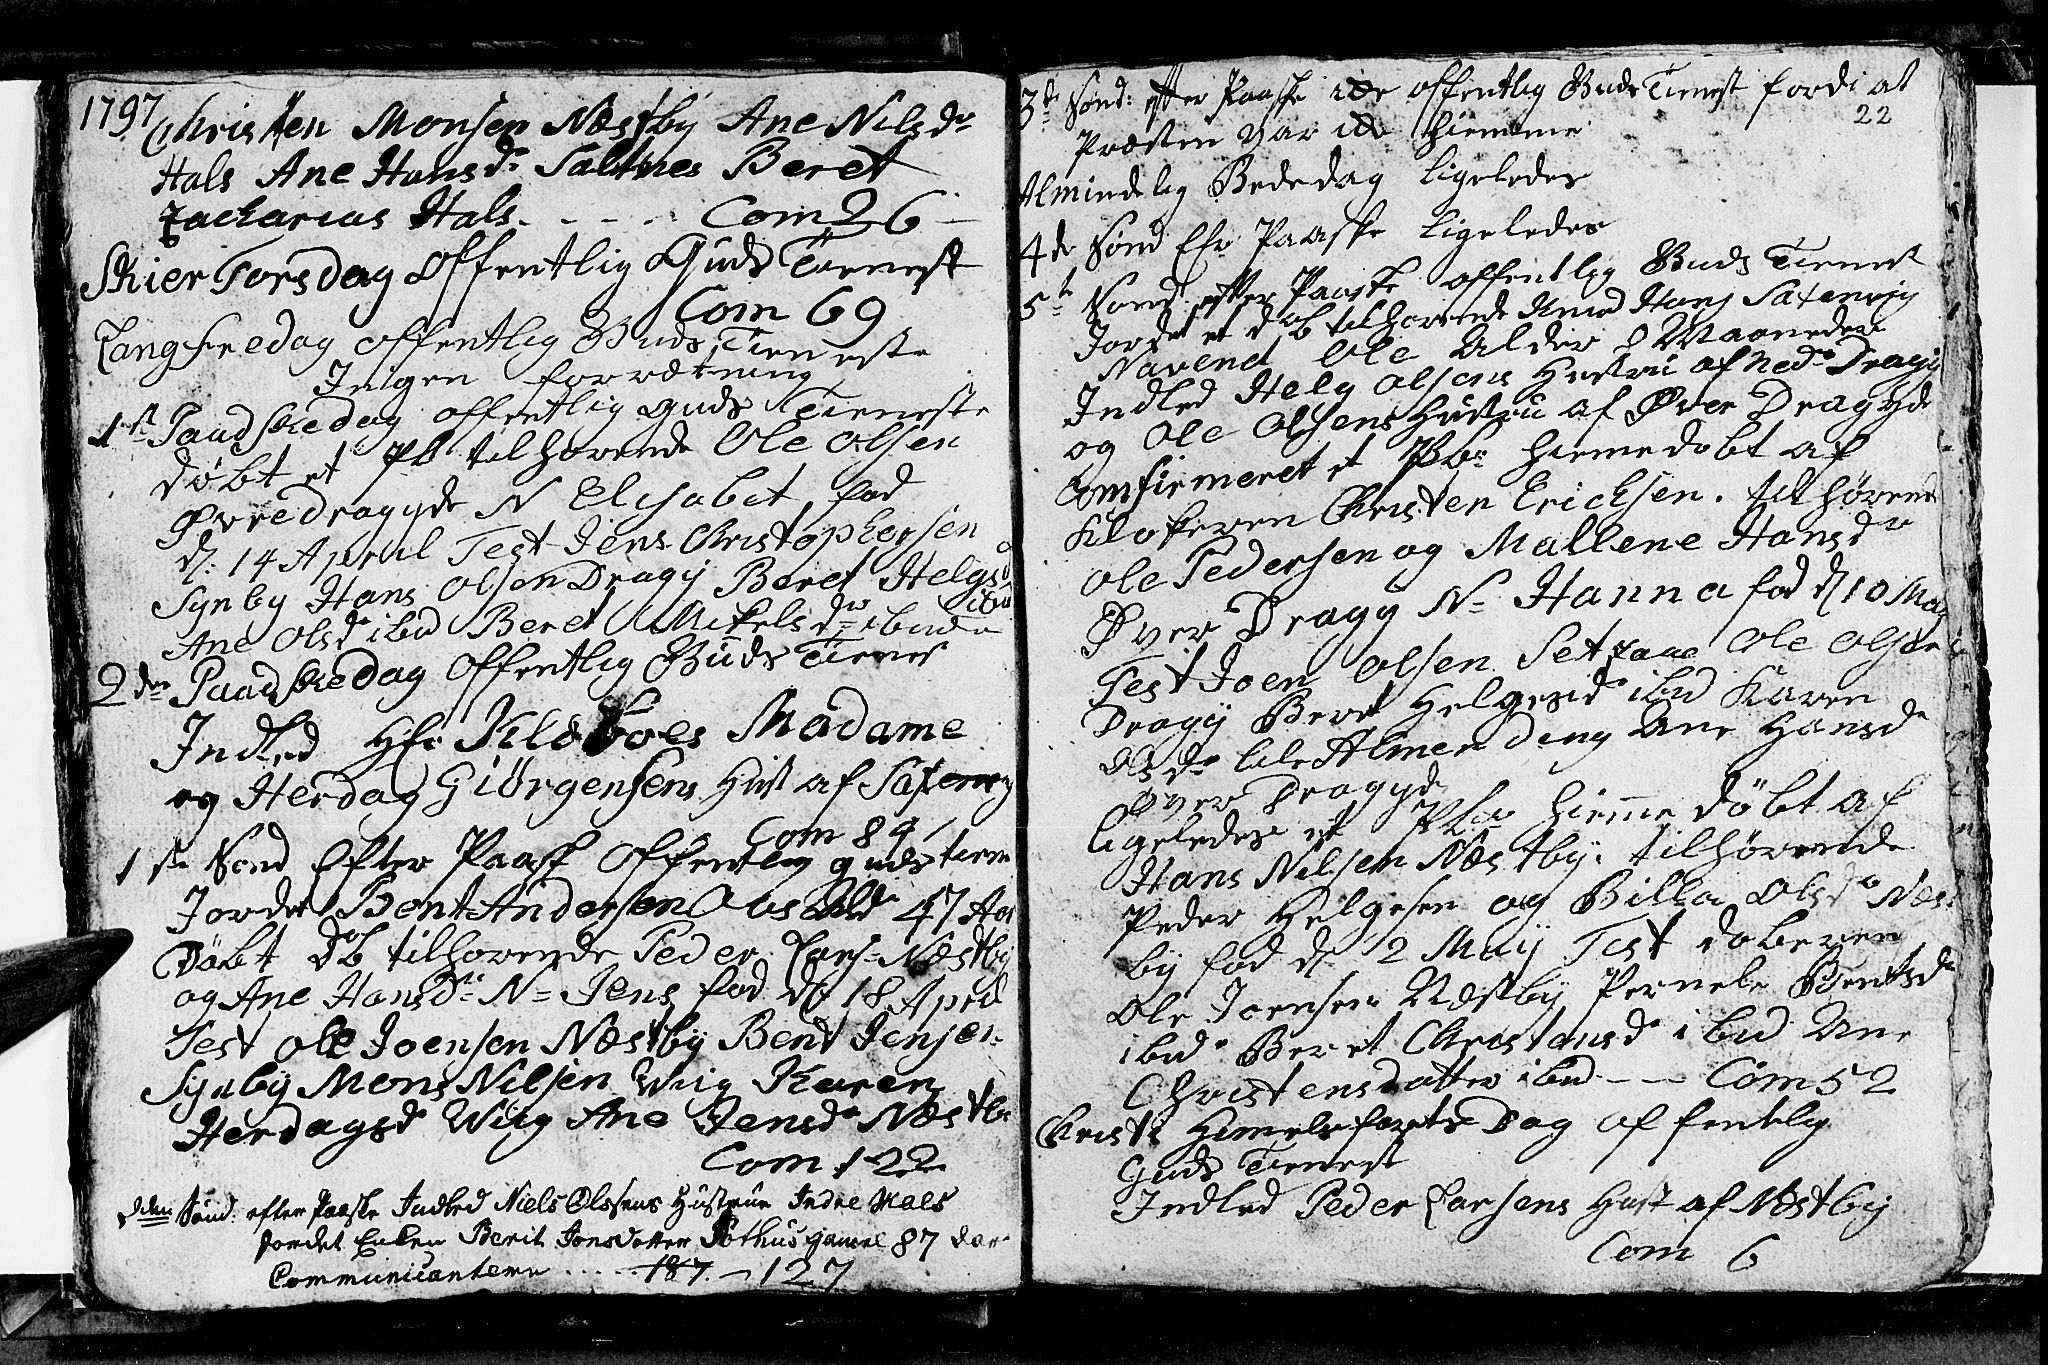 1797
Christen Monsen Næstby Ane Nilsdr
Hals Ane Hansdr Saltnes Beret
Zacharias Hals. - - - . Com 26 -
Skier Torsdag offentlig Guds Tienest
Com 69
Langfredag offentlig Guds Tieneste
Ingen forrætning
1st Paadskedag offentlig Guds Tieneste
døbt et Pb tilhørende Ole Olsen
Øvredragyde N Elisabet fød
d. 14 April Test Jens Christophersen
Synby Hans Olsen Dragij Beret Helgsdr
ibid
Ane Olsdr ibid Beret Mikelsdr ibid
2den Paadskedag offentlig Guds Tienes
Indled Hr Kildboes Madame
og Herdag Giørgensens Hust af Saxenvig
Com 84
1ste Sønd Efter Paask offentlig guds tiene
Jordet Bent Andersen Ald 47 Aar
Døbt db tilhørende Peder Lars= Næstby
og Ane Hansdr N= Jens fød d. 18 April
Test ole Joensen Næstby Bent Jensen
Synby Mons Nilsen Wiig Karen
Herdagsdr Wiig Ane Jensdr Næstby
Com 122
2den Sønd: efter Paaske Indled Niels Olssens Hustrue Indre Hals
Jordet Enken Berit Jonsdotter Pothus gamel 87 aar
Communicantere - - - - 187. - 127
3de Sønd: efter Paaske icke offentlig Guds Tienest fordi at
22
Præsten var icke hiemme
Almindelig Bededag ligeledes
4de Sønd Efr Paaske ligeledes
5te Sønd efter Paaske offentlig Guds Tienest
Jordet et db tilhørende Knud Hans Saxenvig
Navend Ole Alder 8 Maaneder
Indled Helg Olsens Hustru af Nedr Dragij
og Ole Olsens Hustru af Øver Dragyde
Comfirmeret et Pb hiemedøbt af
Klokeren Christen Ericksen. tilhørende
ole Pedersen og Mallene Hansdr
Øver Dragy N= Hanna fød d. 10 May
Test Joen olsen Setsaae Ole Olsen
Dragij Beret Helgesdr ibid Karen
Olsdr lile Almending Ane Hansdr
Øver Dragyde
ligeledes et Pb hieme døbt af
Hans Nilsen Næstby. tilhørende
Peder Helgesen og Billa Olsdr Næst
by fød d. 2 Maij Test daberen
Ole Joensen Næstby Pernele Bentsdr
ibid Beret Christensdr ibid Ane
Christensdatter ibid - - - Com 52
Christi Himelsfarts Dag offentlig
Guds Tienest
Indled Peder Larsens Hust af Næstby
Com 6